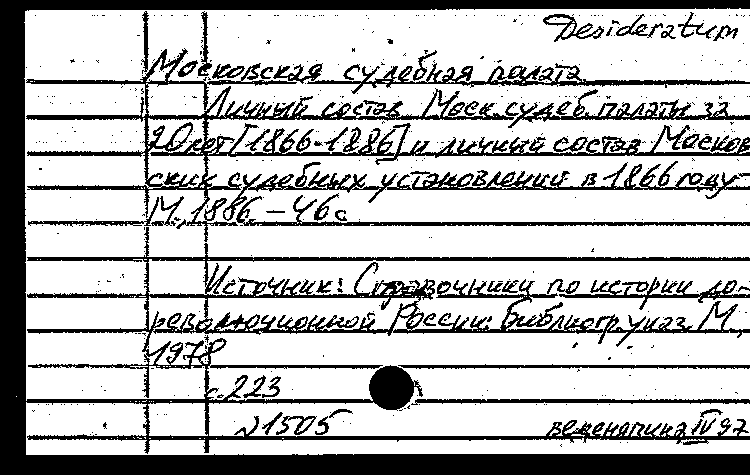 Desideratum
Московская судебная палата
Личный состав Моск. судеб. палаты за
20 лет [1866-1886] и личный состав Москов-
ских судебных установлений в 1866 году-
М., 1886. - 46 с
Источник: Справочники по истории до-
революционной России: Библиогр. указ. М.,
1978
с. 223
N 1505
IV 97